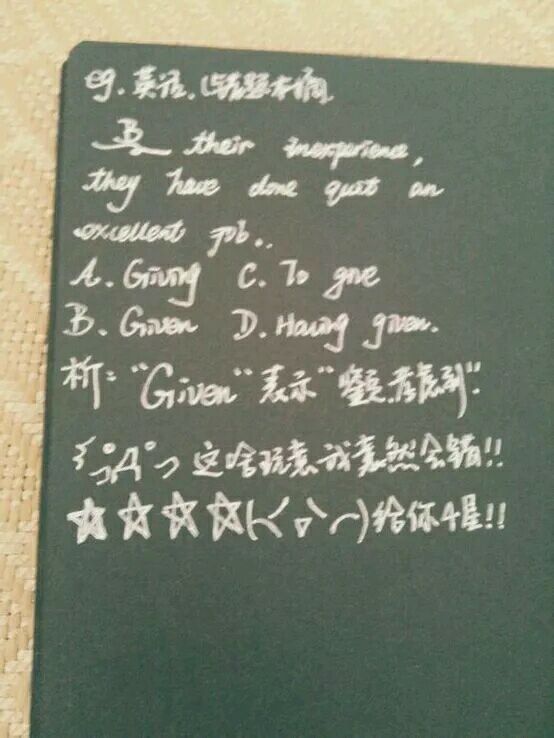 eg. 英语.错题本摘
B their inexperience,
they have done quit an
excellent job..
A. Giving C. To give
B. Given D. Having given.
析: "Given"表示"考虑到".
这啥玩意我竟然会错!!
☆☆☆☆ 给你4星!!